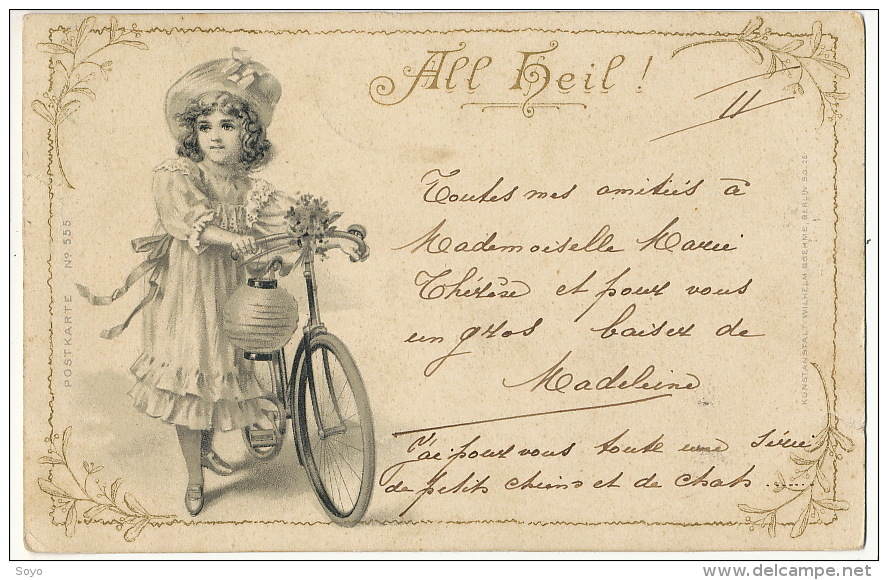 All Heil !
11
Toutes mes amitiés à
Mademoiselle Marie
Thérèse et pour vous
un gros baiser de
Madeleine
J'ai pour vous toute une série
de petits chiens et de chats ......
POSTKARTE No 555
KUNSTANSTALT WILHELM BOEHME, BERLIN S.O. 16
Soyo
www.delcampe.net